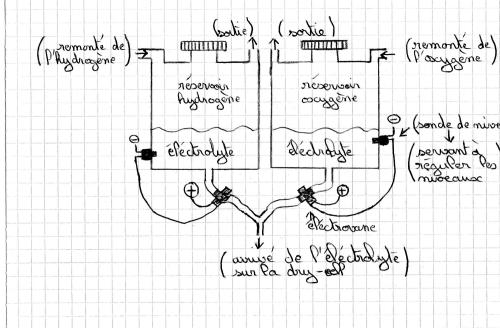 (sortie)
(sortie)
(remonté de
l'hydrogène)
(remonté de
l'oxygène)
réservoir
hydrogène
réservoir
oxygène
(sonde de nive
électrolyte
électrolyte
servant à
réguler les
niveaux)
électrovane
(arrivé de l'électrolyte)
sur la dry-cell